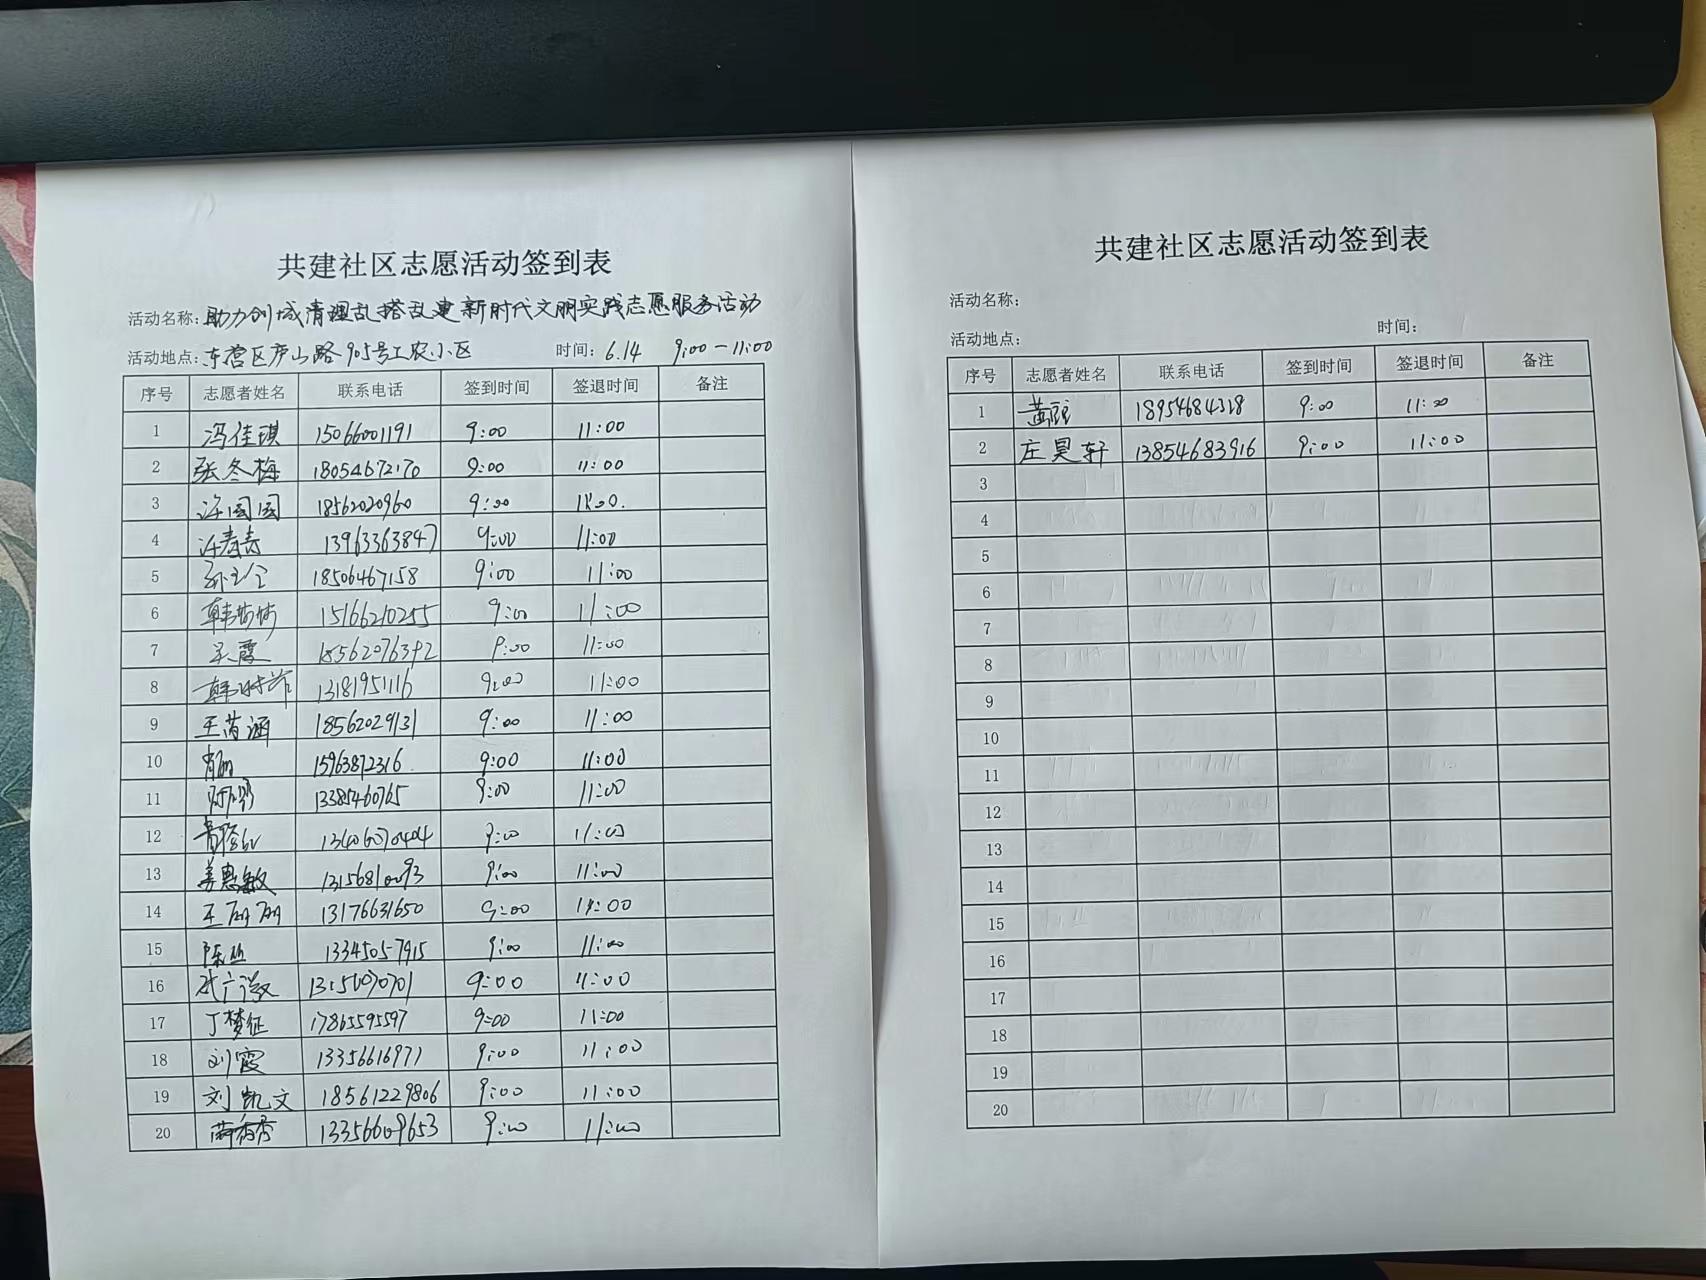 共建社区志愿活动签到表
活动名称: 助力创城清理乱搭乱建新时代文明实践志愿服务活动
活动地点: 东营区庐山路905号工农小区 时间: 6.14 9:00-11:00
序号 志愿者姓名 联系电话 签到时间 签退时间 备注
1 冯佳琪 15066001191 9:00 11:00
2 张冬梅 18054672170 9:00 11:00
3 许园园 18562020960 9:00 11:00.
4 许春青 13963363847 9:00 11:00
5 18506467158 9:00 11:00
6 韩莎莎 15166210255 9:00 11:00
7 吴霞 18562076392 9:00 11:00
8 13181951116 9:00 11:00
9 王芮涵 18562029131 9:00 11:00
10 肖丽 15963872316. 9:00 11:00
11 13385460765 9:00 11:00
12 13406070404 9:00 11:00
13 姜惠敏 13156810093 9:00 11:00
14 王丽丽 13176631650 9:00 11:00
15 陈丛 13345057915 9:00 11:00
16 9:00 11:00
17 丁梦征 17865595597 9:00 11:00
18 刘霞 13356616971 9:00 11:00
19 刘凯文 18561229806 9:00 11:00
20 13356609653 9:00 11:00
共建社区志愿活动签到表
活动名称:
活动地点: 时间:
序号 志愿者姓名 联系电话 签到时间 签退时间 备注
1 黄丽 18954684318 9:00 11:00
2 庄昊轩 13854683916 9:00 11:00
3
4
5
6
7
8
9
10
11
12
13
14
15
16
17
18
19
20